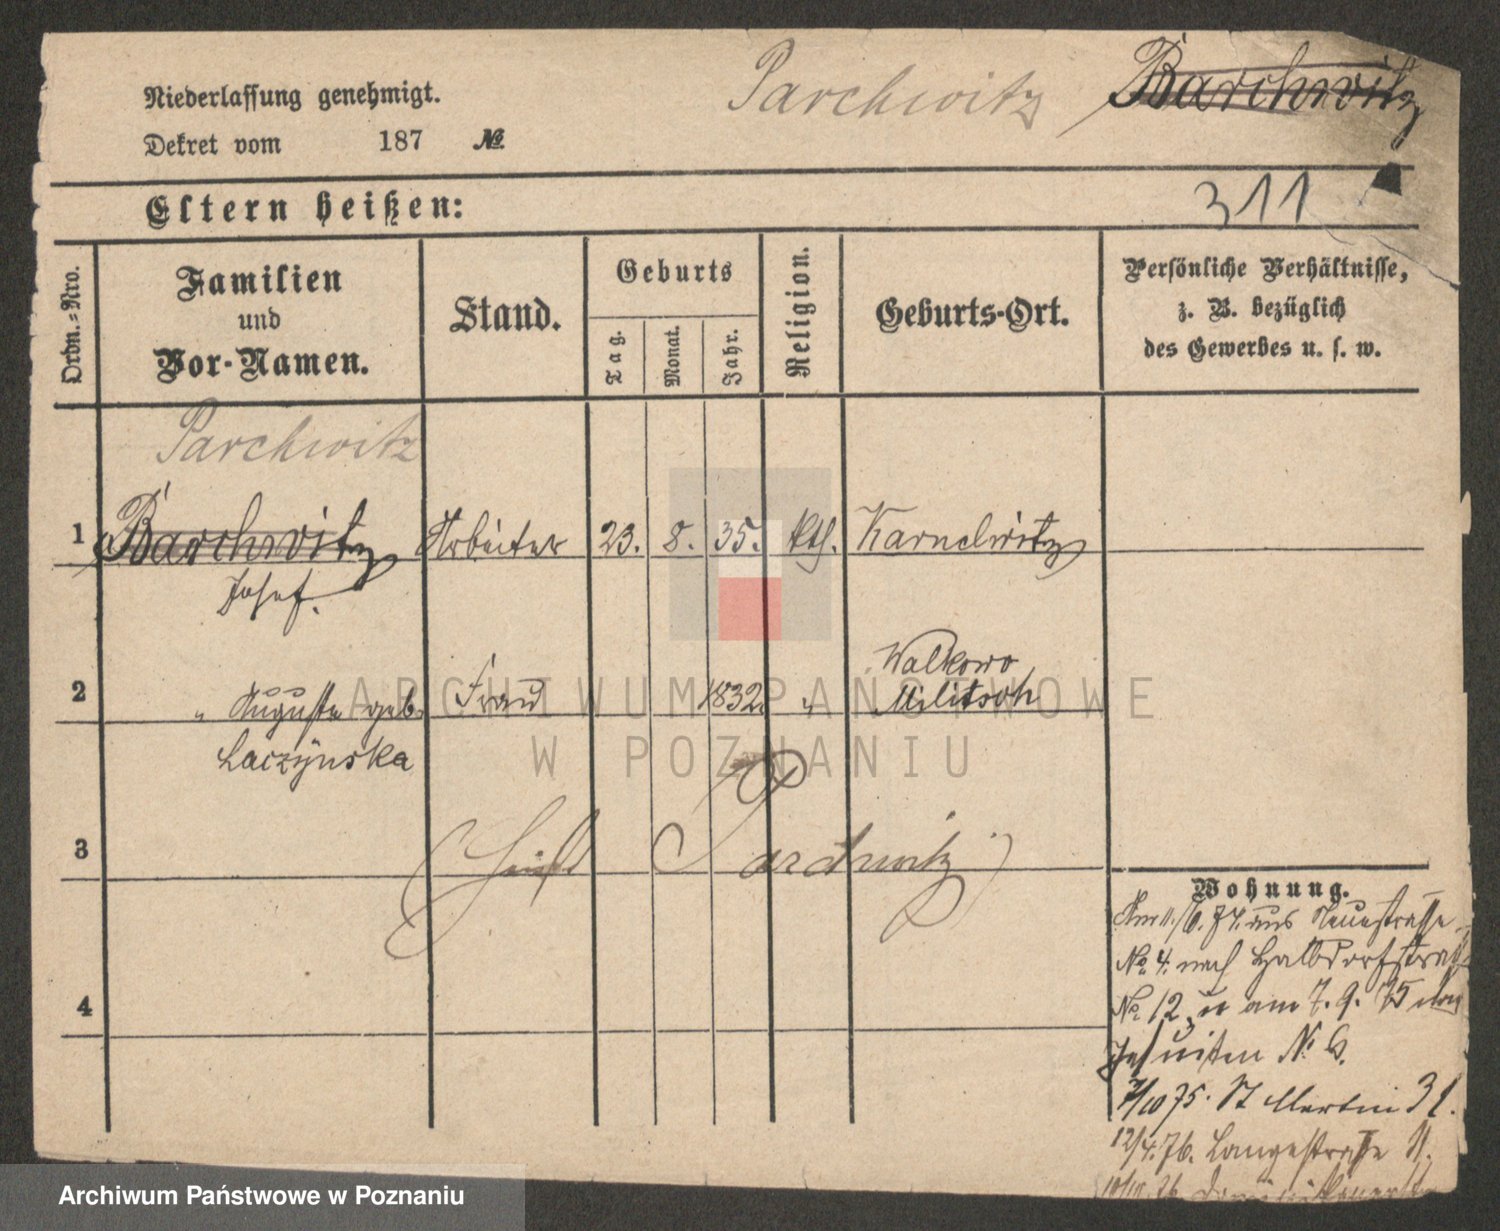 Niederlassung genehmigt.
Dekret vom 187 №
Parchwitz Barchwitz
311
Eltern heißen:
Ordn.=Nro.
Familien
und
Vor-Namen.
Stand.
Geburts
Tag.
Monat.
Jahr.
Religion.
Geburts-Ort.
Persönliche Verhältnisse,
z. B. bezüglich
des Gewerbes u. s. w.
Parchwitz
1 Barchwitz Arbeiter 23. 8. 35. kth.
Josef.
Walkowo
2 " Auguste geb. Frau 1832. " Militsch
Laczÿnska
3 heißt Parchwitz
4
Wohnung.
74. aus Neuestrasse
No. 4. nach Halbdorfstraße
No. 12, u am 7. 9. 75 nach
Jesuiten No 6.
7/10 75. St Martin 31.
12/4. 76. Langestraße 11.
ARCHIWUM PAŃSTWOWE
W POZNANIU
Archiwum Państwowe w Poznaniu